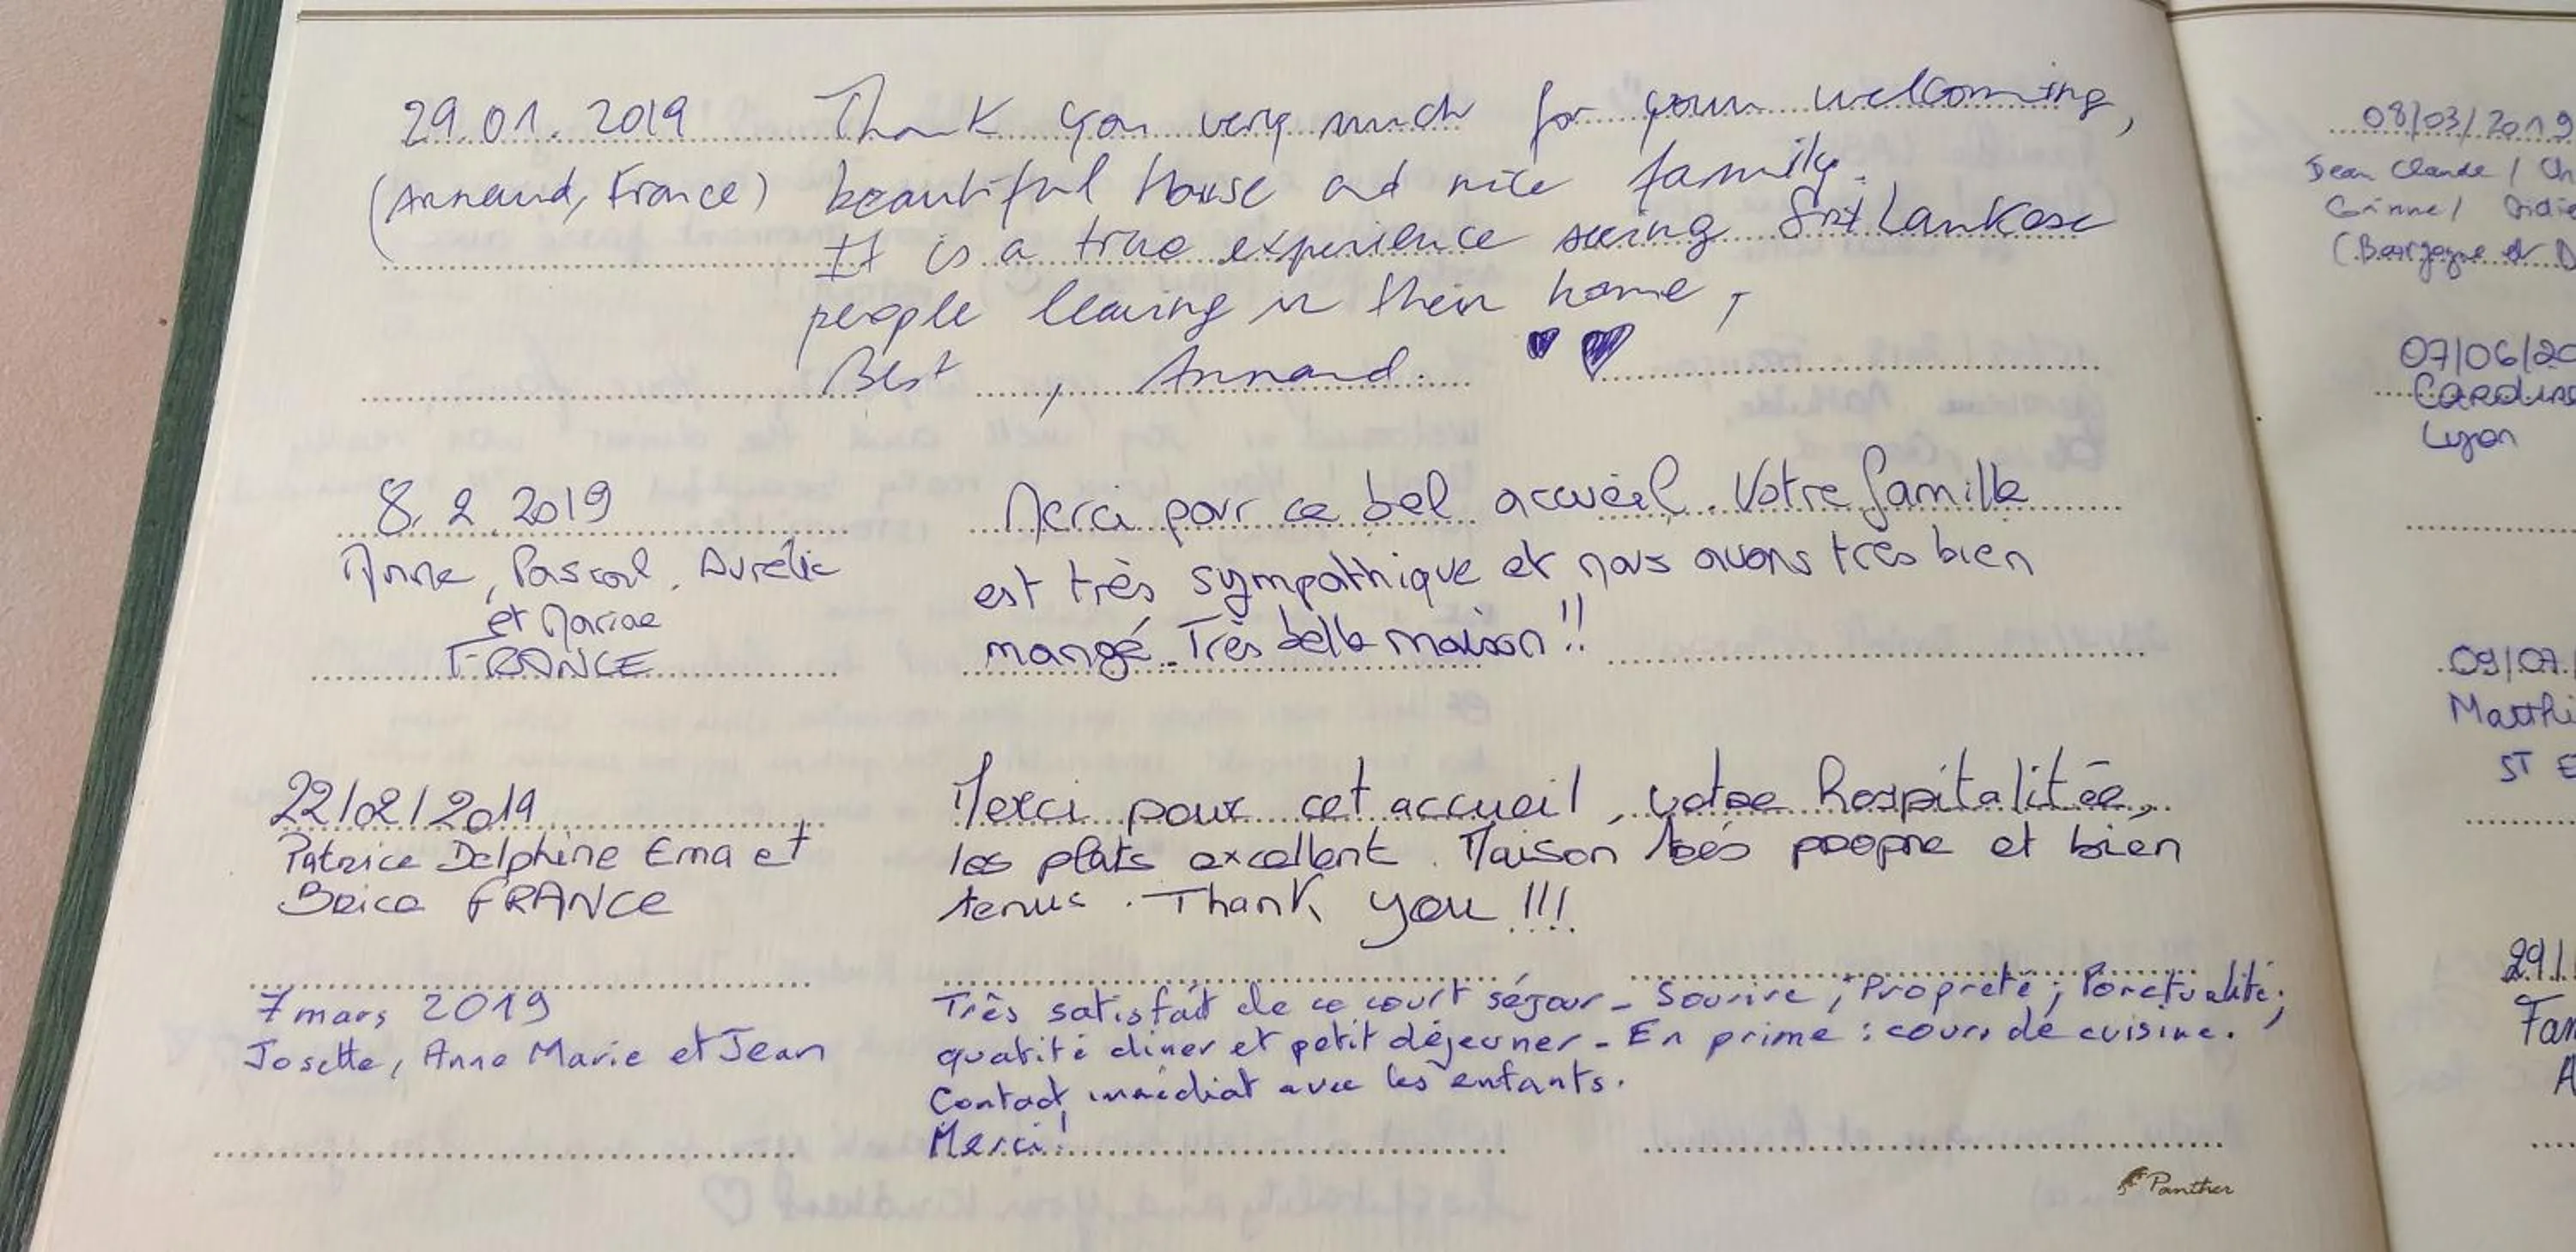 29.01.2019 Thank you very much for your welcoming,
(Arnaud, France) beautiful House and nice family.
It is a true experience seeing Sri Lankese
people leaving in their home,
Best, Arnaud. ♥ ♥
8.2.2019
Anne, Pascal, Aurélie
et Mariae
FRANCE
Merci pour ce bel accueil. Votre famille
est très sympathique et nous avons très bien
mangé. Très belle maison !!
22/02/2019
Patrice Delphine Ema et
Brice FRANCE
Merci pour cet accueil, votre hospitalitée,
les plats excellent. Maison très propre et bien
tenus. Thank you !!!
7 mars 2019
Josette, Anne Marie et Jean
Très satisfait de ce court séjour - Sourire ; Propreté ; Ponctualité ;
qualité diner et petit déjeuner - En prime : cours de cuisine.
Contact immédiat avec les enfants.
Merci !
Panther
08/03/2019
Jean Claude / Ch
Corinne / Didie
(Bourgogne et D
07/06/20
Caroline
Lyon
09/07/
Matthi
ST E
29/
Fam
A